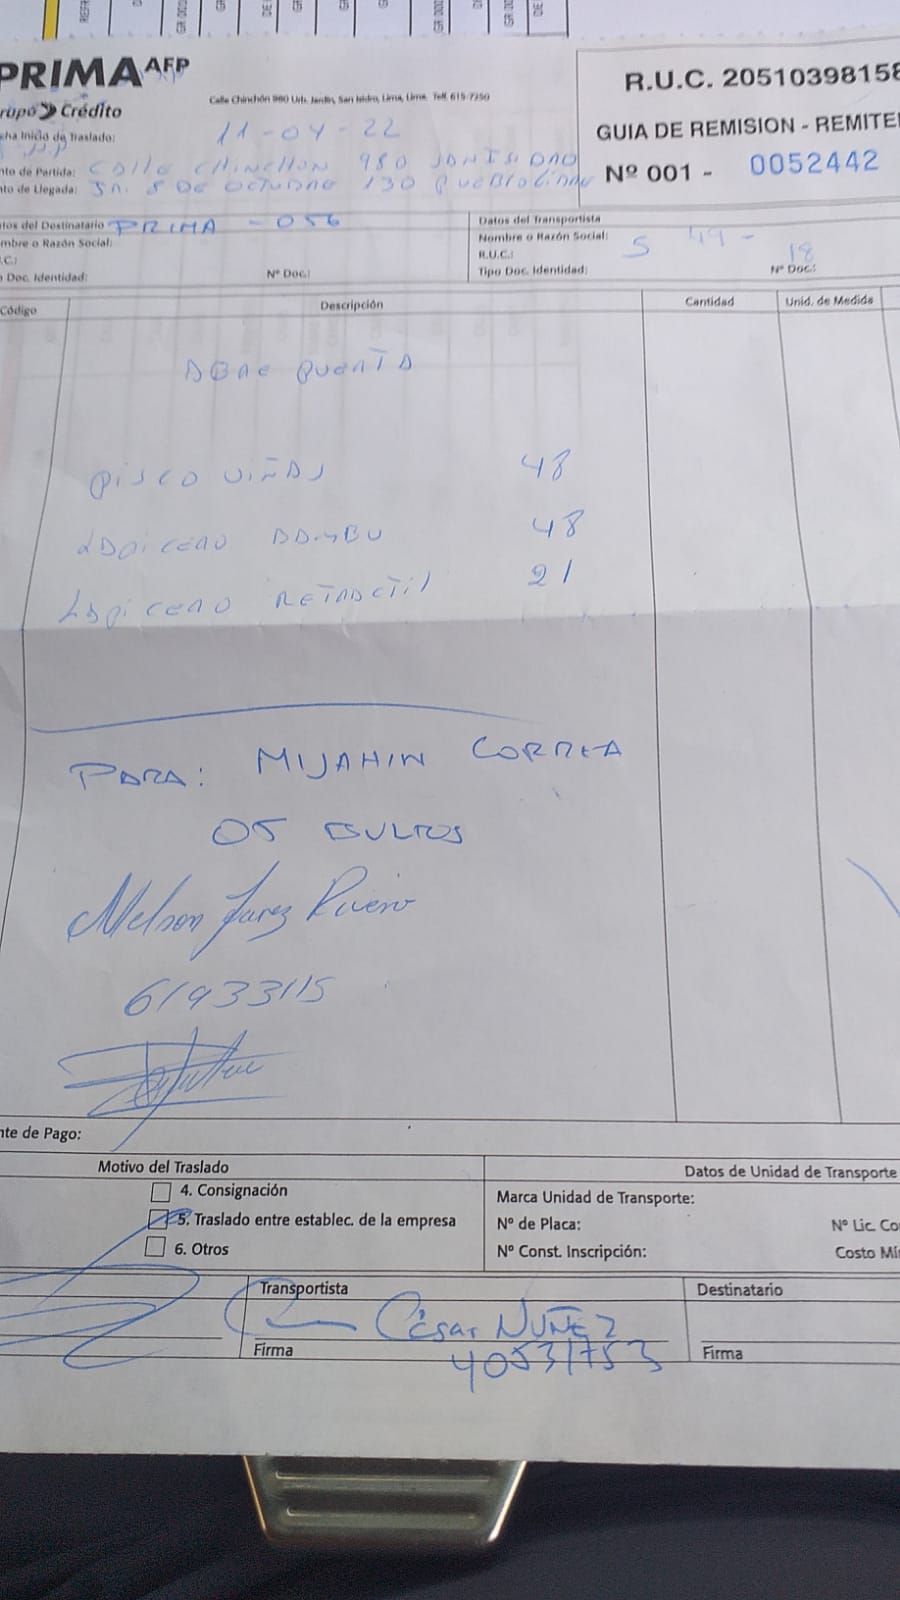 PRIMA AFP
Grupo Crédito
Calle Chinchón 980 Urb. Jardín, San Isidro, Lima, Lima. Telf. 615-7250
R.U.C. 20510398158
GUIA DE REMISION - REMITE
Nº 001 - 0052442
cha Inicio de Traslado: 11-04-22
nto de Partida: Calle Chinchon 980
nto de Llegada: Jn. 8 De Octubre 130
tos del Destinatario PRIMA - 056
mbre o Razón Social:
.C.:
Doc. Identidad: Nº Doc.:
Datos del Transportista
Nombre o Razón Social: 5 49 - 18
R.U.C.:
Tipo Doc. Identidad: Nº Doc:
Código Descripción Cantidad Unid. de Medida
PISCO VIÑAS 48
LAPICERO BAMBU 48
LAPICERO RETRACTIL 21
PARA: MIJAHIN CORREA
05 BULTOS
Nelson
61933115
nte de Pago:
Motivo del Traslado
4. Consignación
5. Traslado entre establec. de la empresa
6. Otros
Datos de Unidad de Transporte
Marca Unidad de Transporte:
Nº de Placa: Nº Lic. Co
Nº Const. Inscripción: Costo Mí
Transportista
César NUÑEZ
Firma
40531753
Destinatario
Firma